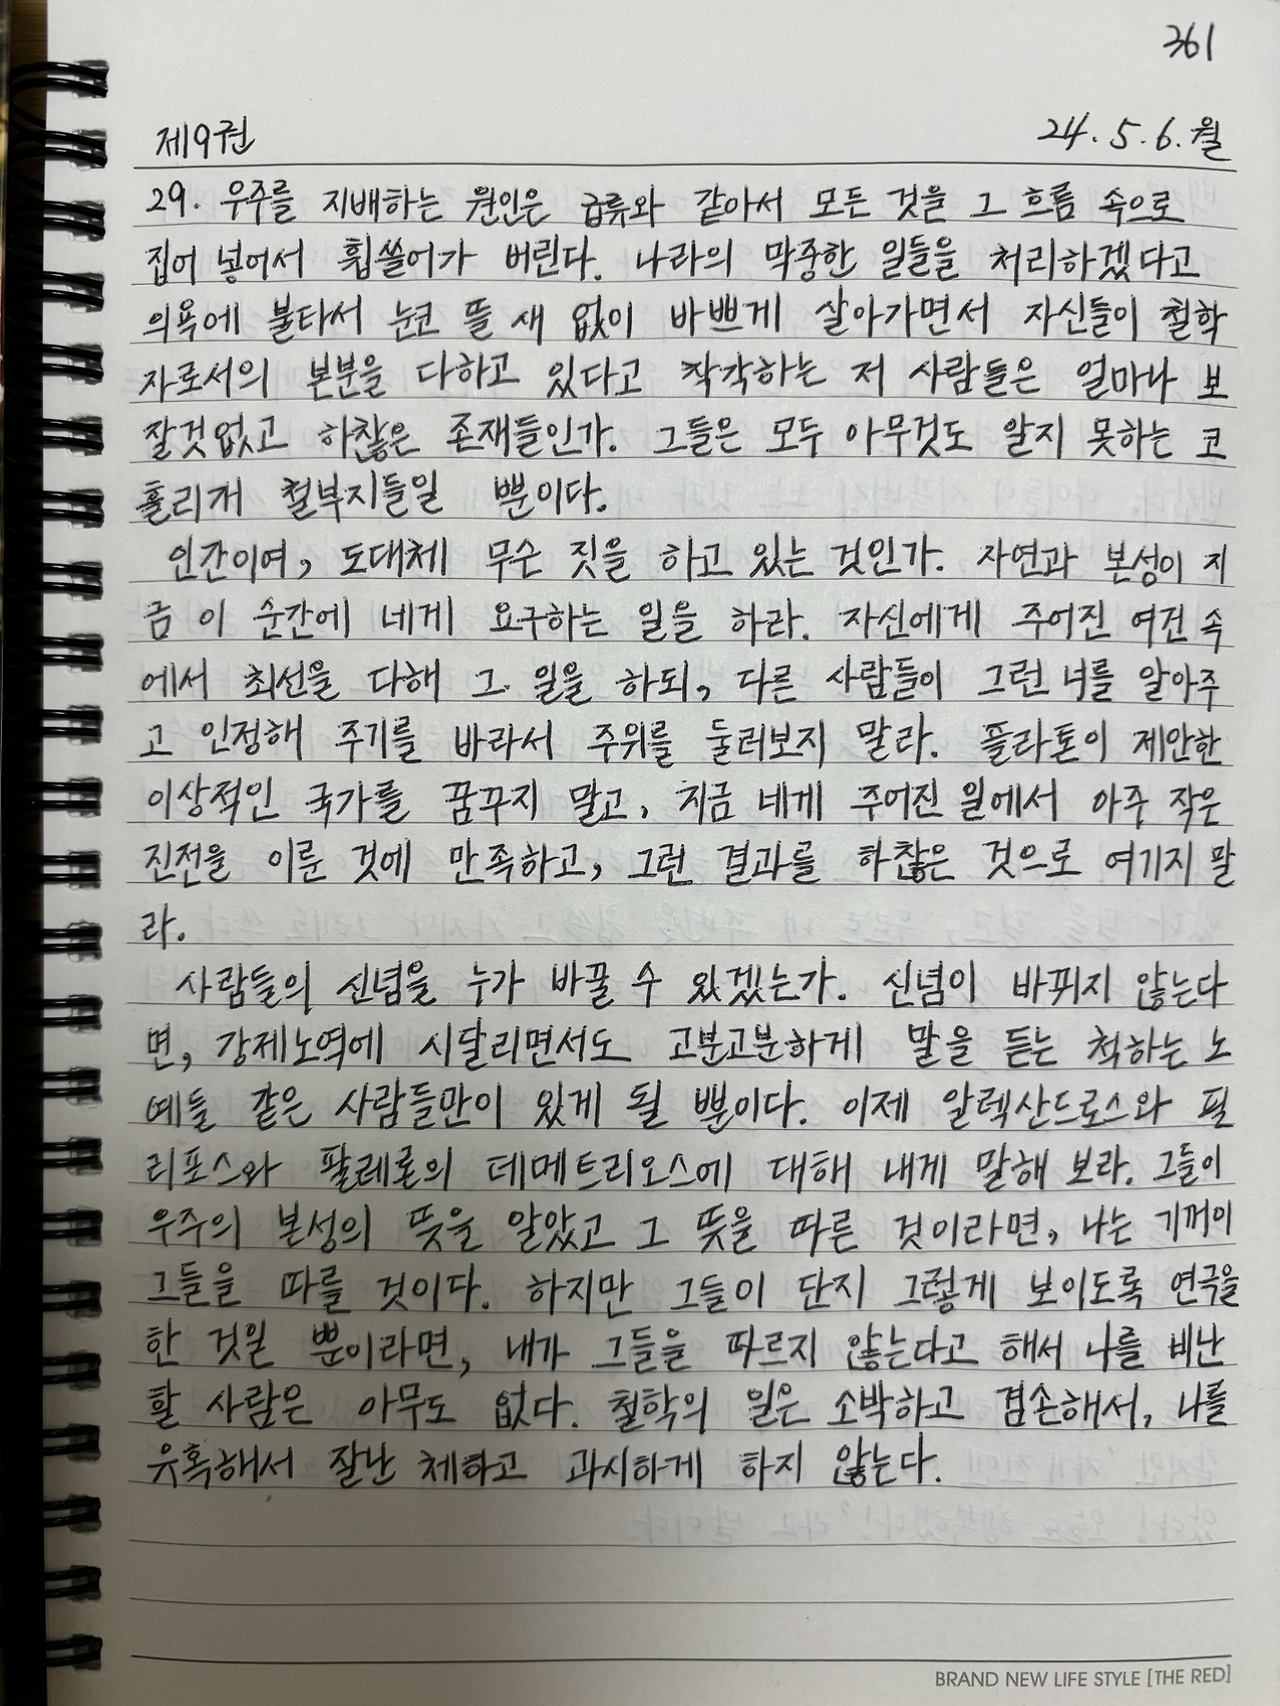 361
제9권 24.5.6.월
29. 우주를 지배하는 원인은 급류와 같아서 모든 것을 그 흐름 속으로
집어 넣어서 휩쓸어가 버린다. 나라의 막중한 일들을 처리하겠다고
의욕에 불타서 눈코 뜰 새 없이 바쁘게 살아가면서 자신들이 철학
자로서의 본분을 다하고 있다고 착각하는 저 사람들은 얼마나 보
잘것없고 하찮은 존재들인가. 그들은 모두 아무것도 알지 못하는 코
흘리개 철부지들일 뿐이다.
인간이여, 도대체 무슨 짓을 하고 있는 것인가. 자연과 본성이 지
금 이 순간에 네게 요구하는 일을 하라. 자신에게 주어진 여건 속
에서 최선을 다해 그 일을 하되, 다른 사람들이 그런 너를 알아주
고 인정해 주기를 바라서 주위를 둘러보지 말라. 플라톤이 제안한
이상적인 국가를 꿈꾸지 말고, 지금 네게 주어진 일에서 아주 작은
진전을 이룬 것에 만족하고, 그런 결과를 하찮은 것으로 여기지 말
라.
사람들의 신념을 누가 바꿀 수 있겠는가. 신념이 바뀌지 않는다
면, 강제노역에 시달리면서도 고분고분하게 말을 듣는 척하는 노
예들 같은 사람들만이 있게 될 뿐이다. 이제 알렉산드로스와 필
리포스와 팔레론의 데메트리오스에 대해 내게 말해 보라. 그들이
우주의 본성의 뜻을 알았고 그 뜻을 따른 것이라면, 나는 기꺼이
그들을 따를 것이다. 하지만 그들이 단지 그렇게 보이도록 연극을
한 것일 뿐이라면, 내가 그들을 따르지 않는다고 해서 나를 비난
할 사람은 아무도 없다. 철학의 일은 소박하고 겸손해서, 나를
유혹해서 잘난 체하고 과시하게 하지 않는다.
BRAND NEW LIFE STYLE [THE RED]